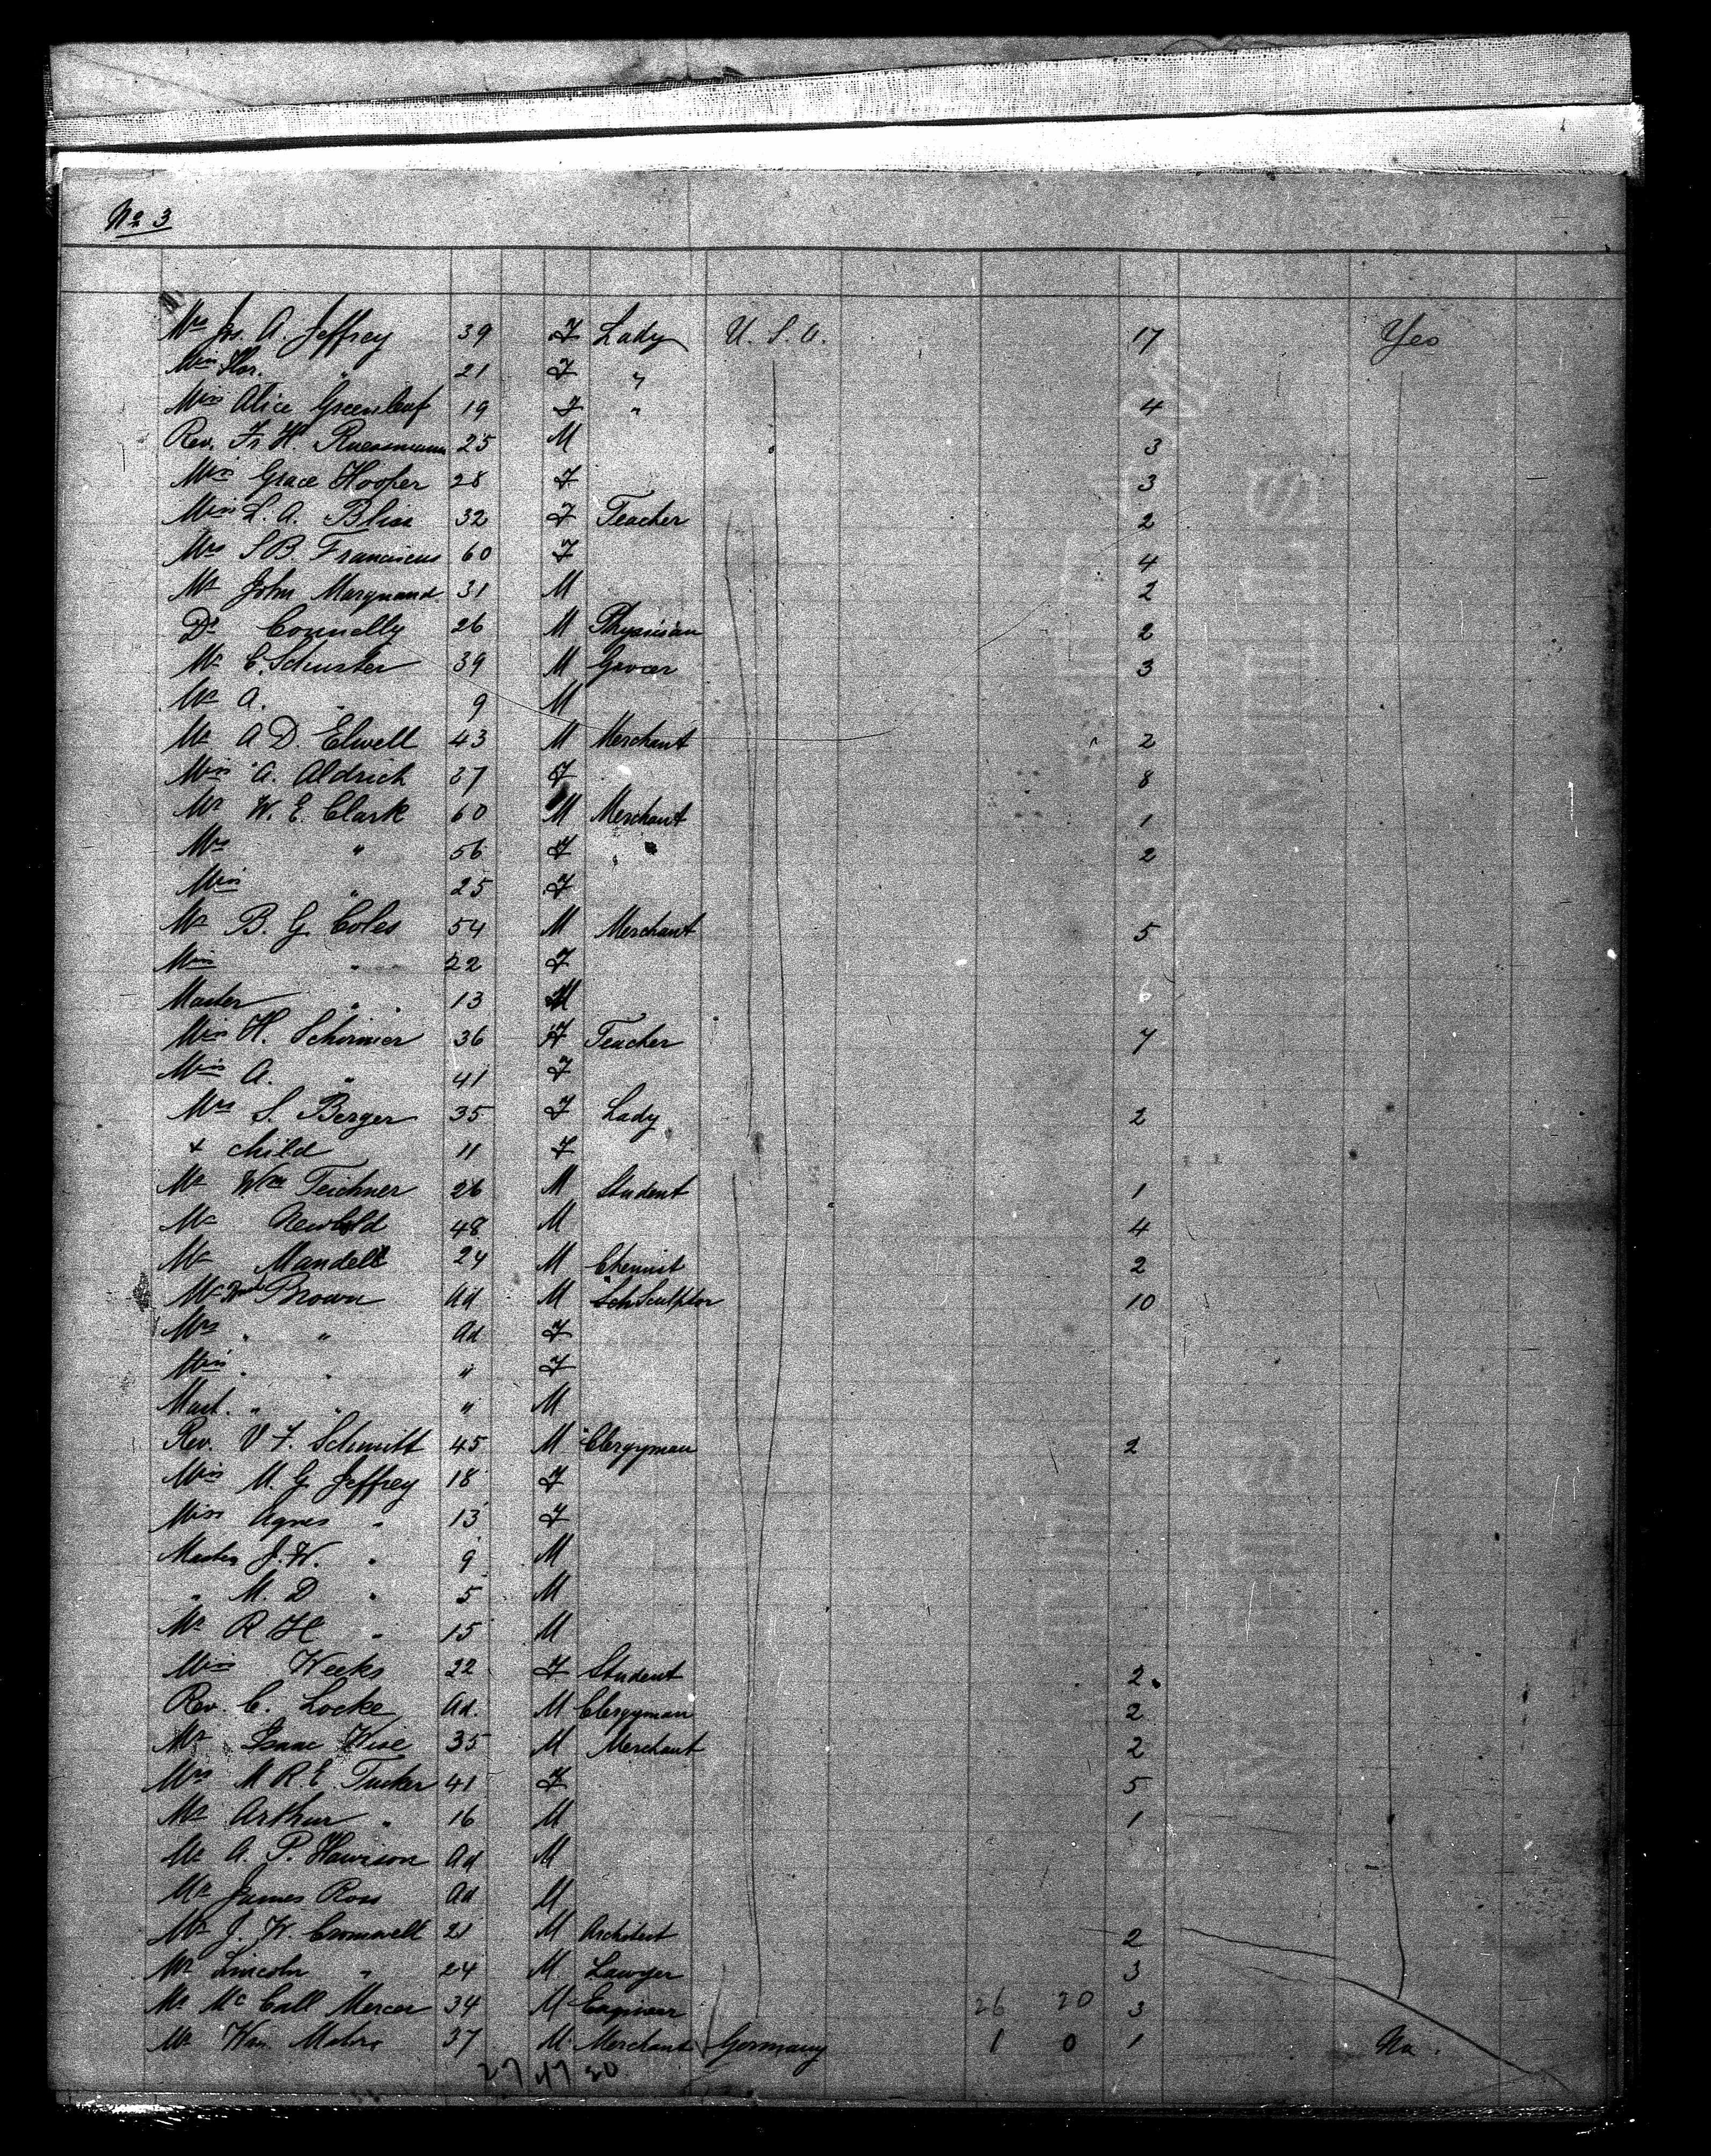 No 3
Mrs Jos. A. Jeffrey 39 F Lady U. S. A. 17 Yes
Miss Flor. " 21 F "
Miss Alice Greenleaf 19 F " 4
Rev. Fr. H. 25 M 3
Miss Grace Hooper 28 F 3
Miss L. A. Bliss 32 F Teacher 2
Mrs S B. Franciscus 60 F 4
Mr John Marquand 31 M 2
Dr Connelly 26 M Physician 2
Mr C. Schuster 39 M Grocer 3
Mr A. " 9 M
Mr A D. Elwell 43 M Merchant 2
Miss A. Aldrich 37 F 8
Mr W. E. Clark 60 M Merchant 1
Mrs " 56 F 2
Miss " 25 F
Mr B. G. Coles 54 M Merchant 5
Miss " 22 F
Master " 13 M 6
Miss H. Schirmer 36 F Teacher 7
Miss A. " 41 F
Mrs S. Berger 35 F Lady 2
+ child 11 F
Mr Wm Teichner 26 M Student 1
Mr Newbold 48 M 4
Mr Mandell 24 M Chemist 2
Mr Brown Ad M Sculptor 10
Mrs " " Ad F
Miss " " " F
Mast. " " " M
Rev. V. F. Schmitt 45 M Clergyman 2
Miss M. G. Jeffrey 18 F
Miss Agnes " 13 F
Master J. W. " 9 M
" M. D " 5 M
Mr R H " 15 M
Miss Weeks 22 F Student 2
Rev. C. Locke Ad. M Clergyman 2
Mr Isaac Wise 35 M Merchant 2
Mrs M R E. Tucker 41 F 5
Mr Arthur " 16 M 1
Mr A. P. Ad M
Mr James Ross Ad M
Mr J. W. Cromwell 21 M Architect 2
Mr Lincoln " 24 M Lawyer 3
Mr Mc Call Mercer 34 M Engineer 26 20 3
Mr Wm. 37 M Merchant Germany 1 0 1 No.
27 47 20